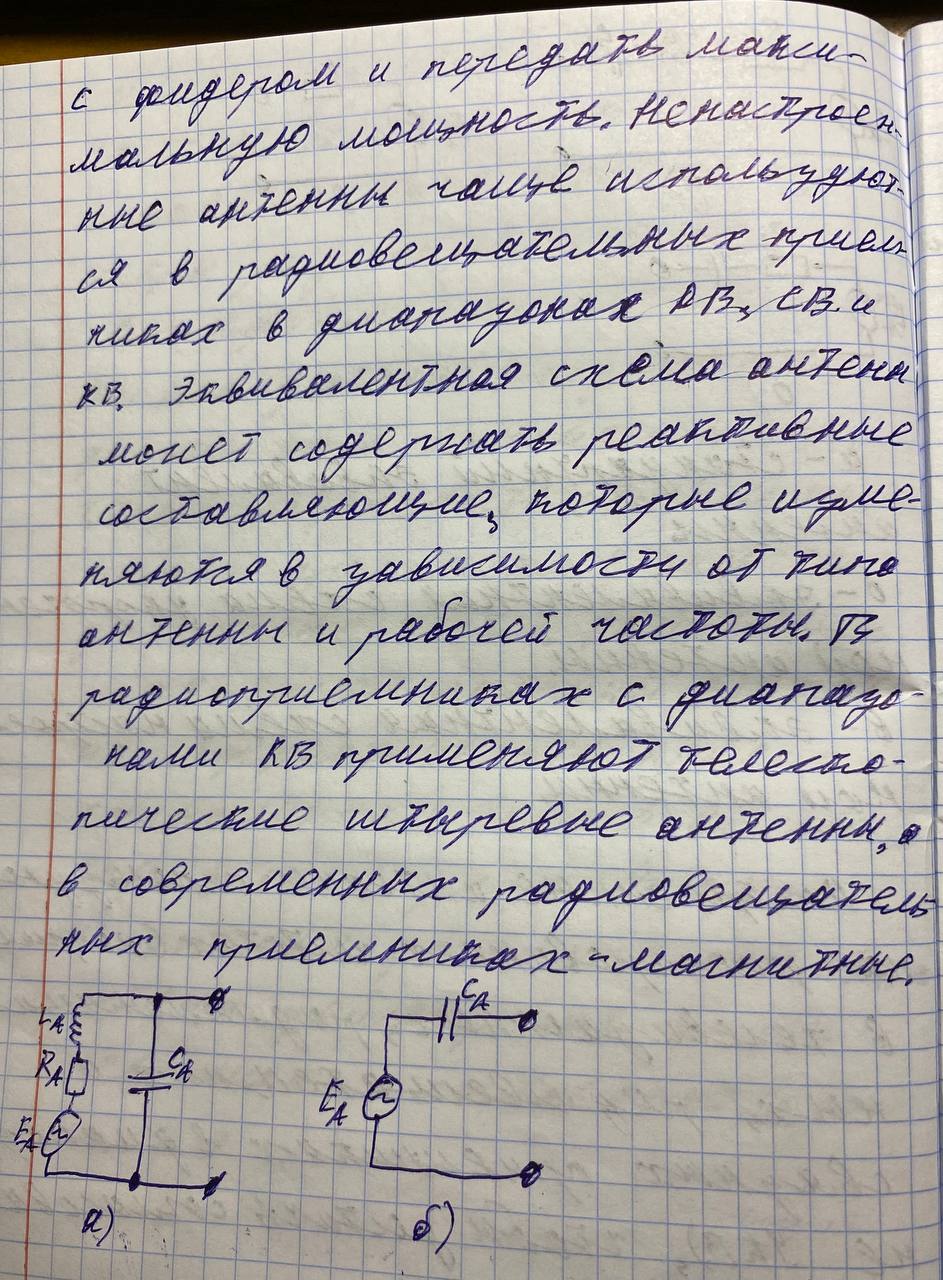 с фидером и передать макси-
мальную мощность. Ненастроен-
ные антенны чаще используют-
ся в радиовещательных прием-
никах в диапазонах ДВ, СВ и
КВ. Эквивалентная схема антенн
может содержать реактивные
составляющие, которые изме-
няются в зависимости от типа
антенны и рабочей частоты. В
радиоприемниках с диапазо-
нами КВ применяют телеско-
пические штыревые антенны, а
в современных радиовещатель
ных приемниках - магнитные.
LA
RA
EA
CA
а)
CA
EA
б)